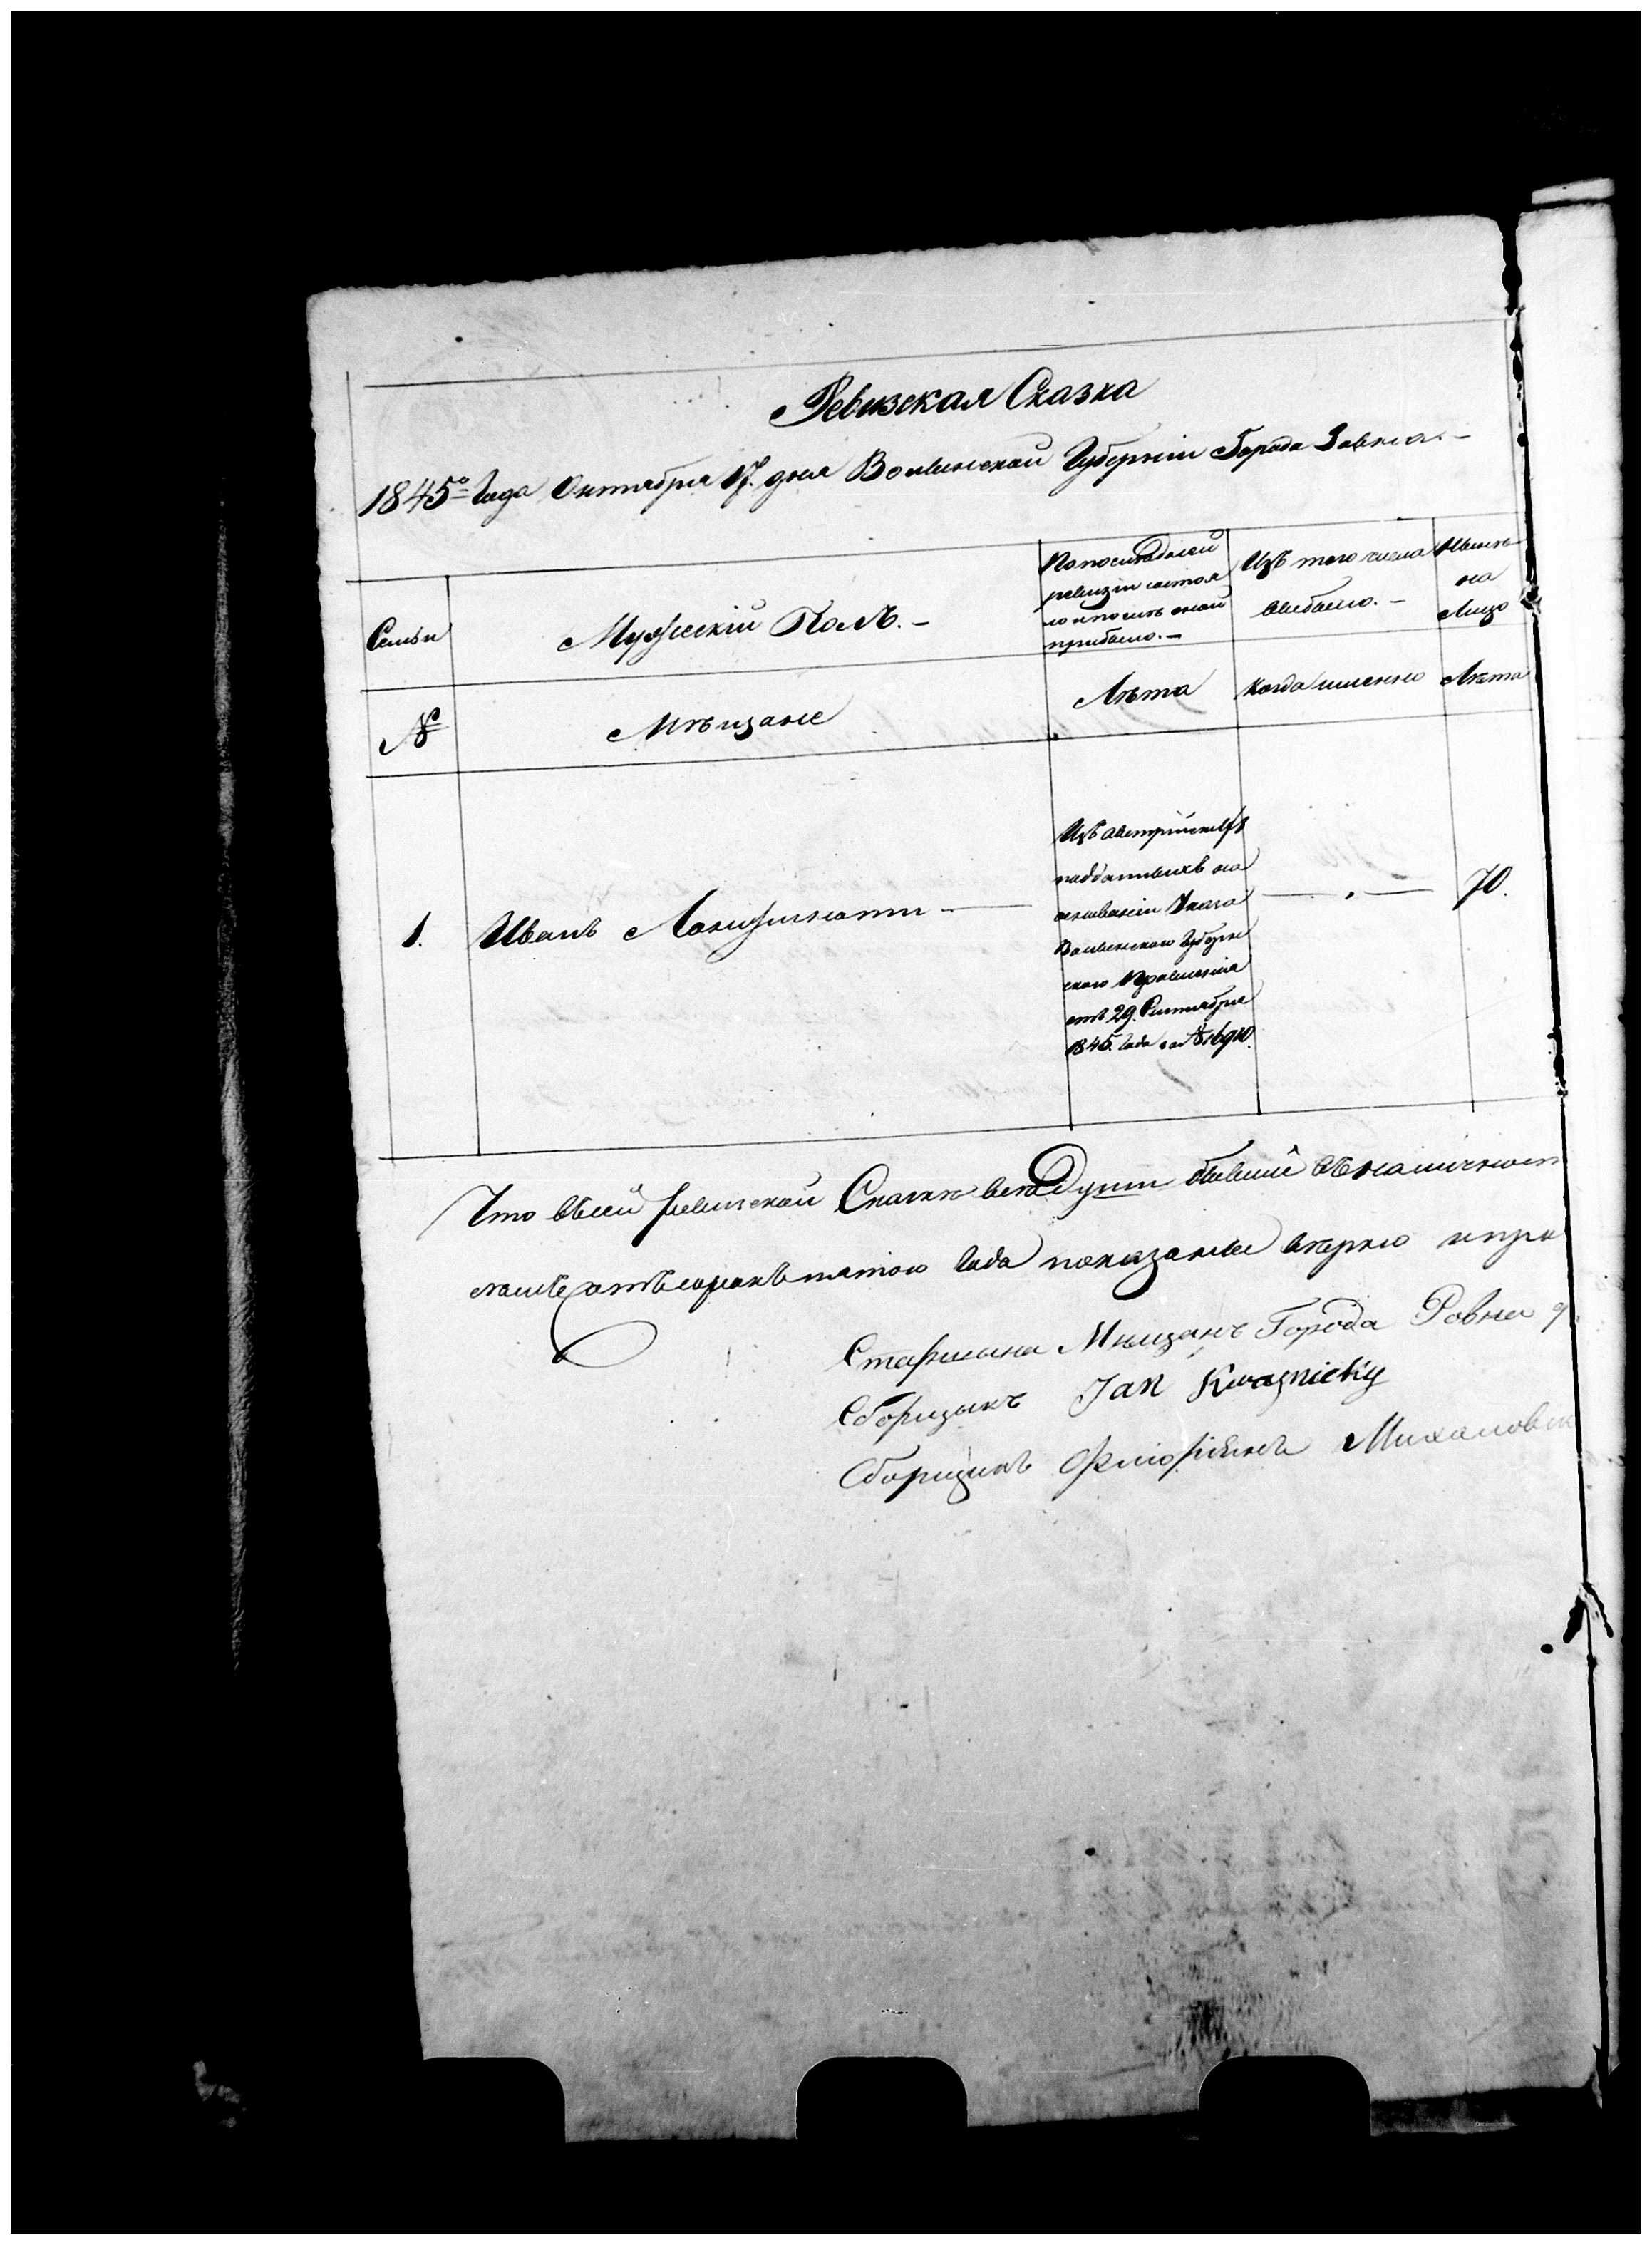 Ревизская Сказка
1845го Года Октября 17. дня Волынской Губернiи Города Ровна.-
Семьи
Мужескiй Полъ.-
По последней
ревизiи состоя
ло и после оной
прибыло.-
Изъ того числа
выбыло.-
Ныне
на
Лицо
№
Мѣщане
Лѣта
Когда именно
Лѣта
1.
Иванъ
Изъ австрiйскихъ
подданныхъ на
основанiи Указа
Волынского Губерн
ского Правленiя
отъ 29. Сентября
1845. Года за №
70.
Что въ сей ревизской Сказке все души бывшiе въ наличност
сорокъ пятого Года показаны верно и при
Старшина Мещанъ Города Ровна
Сборщикъ Jan Kwaśnicky
Сборщикъ Михаловск